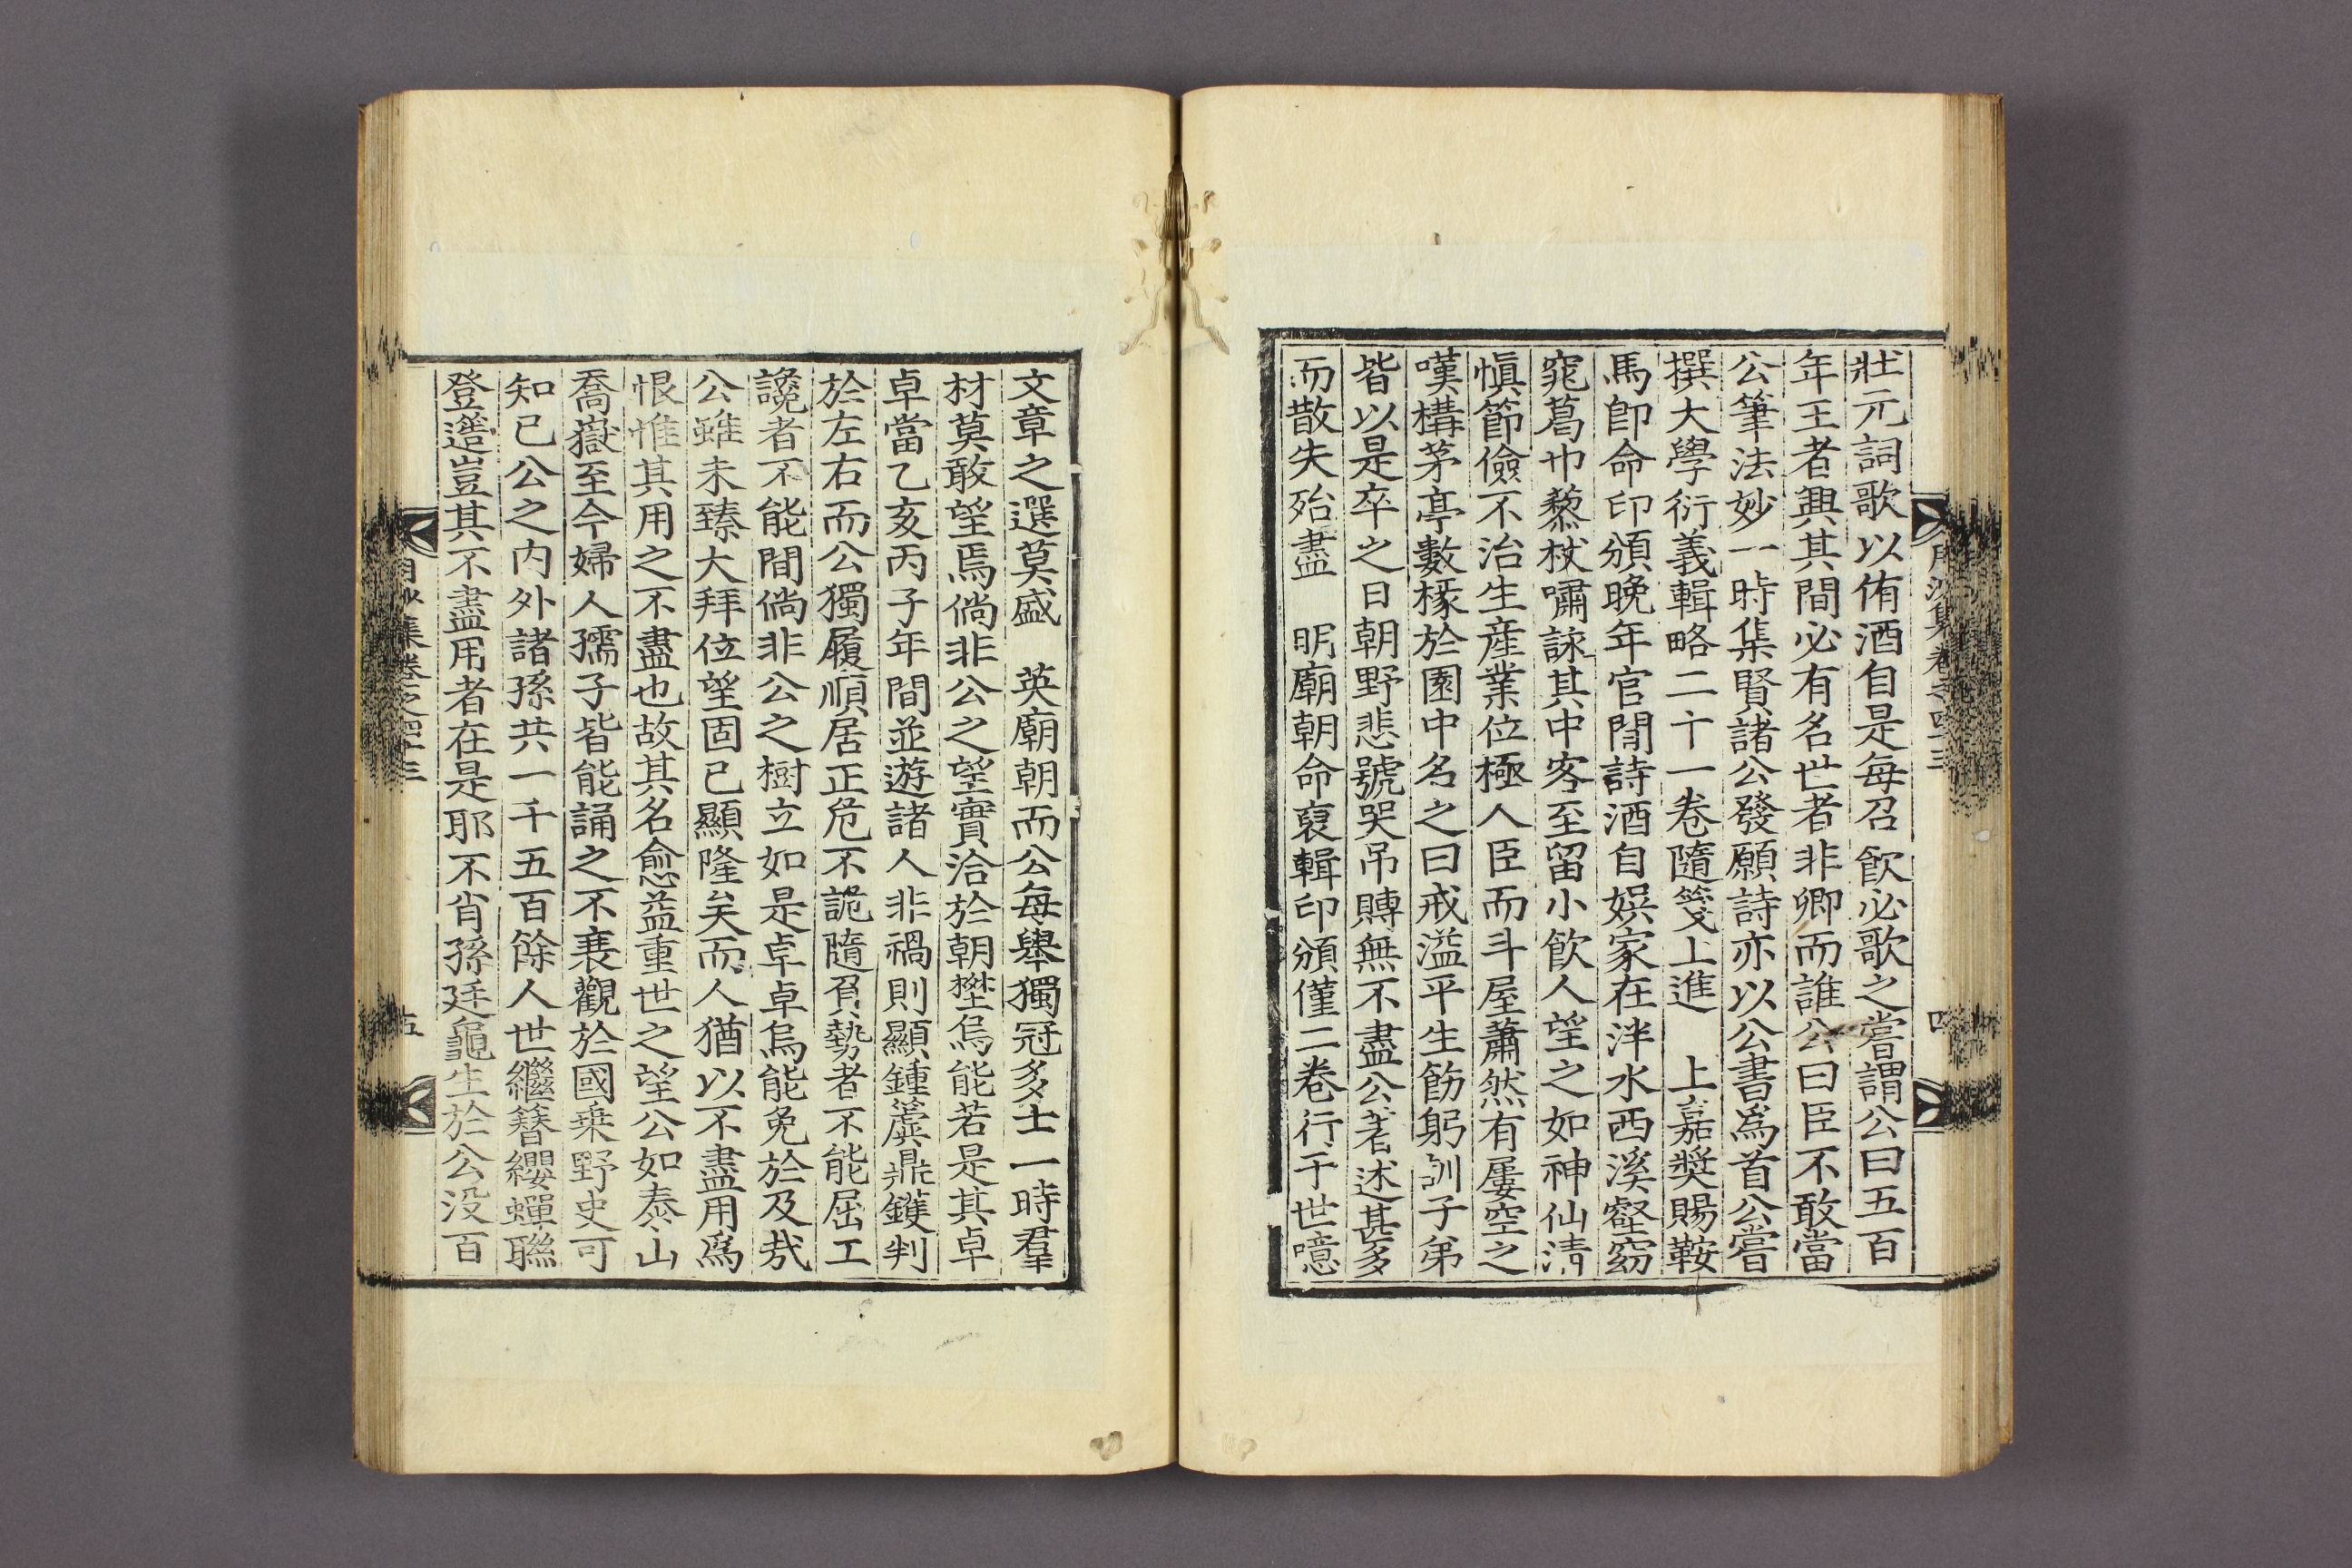 壯元詞歌以侑酒自是每召 飮必歌之嘗謂公曰五百
年王者興其間必有名世者非卿而誰公曰臣不敢當
公筆法妙一時集賢諸公發願詩亦以公書爲首公嘗
撰大學衍義輯略二十一卷隨箋上進 上嘉奬賜鞍
馬卽命印頒晩年官閒詩酒自娛家在泮水西溪壑窈
窕葛巾藜杖嘯詠其中客至留小飮人望之如神仙淸
愼節儉不治生産業位極人臣而斗屋蕭然有屢空之
嘆構茅亭數椽於園中名之曰戒溢平生飭躬訓子弟
皆以是卒之日朝野悲號哭吊賻無不盡公著述甚多
而散失殆盡 明廟朝命裒輯印頒僅二卷行于世噫
文章之選莫盛 英廟朝而公每擧獨冠多士一時羣
材莫敢望焉倘非公之望實洽於朝埜烏能若是其卓
卓當乙亥丙子年間並遊諸人非禍則顯鍾簴鼎鑊判
於左右而公獨履順居正危不詭隨負勢者不能屈工
讒者不能間倘非公之樹立如是卓卓烏能免於及哉
公雖未臻大拜位望固已顯隆矣而人猶以不盡用爲
恨惟其用之不盡也故其名愈益重世之望公如泰山
喬嶽至今婦人孺子皆能誦之不衰觀於國乘野史可
知已公之內外諸孫共一千五百餘人世繼簪纓蟬聯
登筵豈其不盡用者在是耶不肖孫廷龜生於公沒百